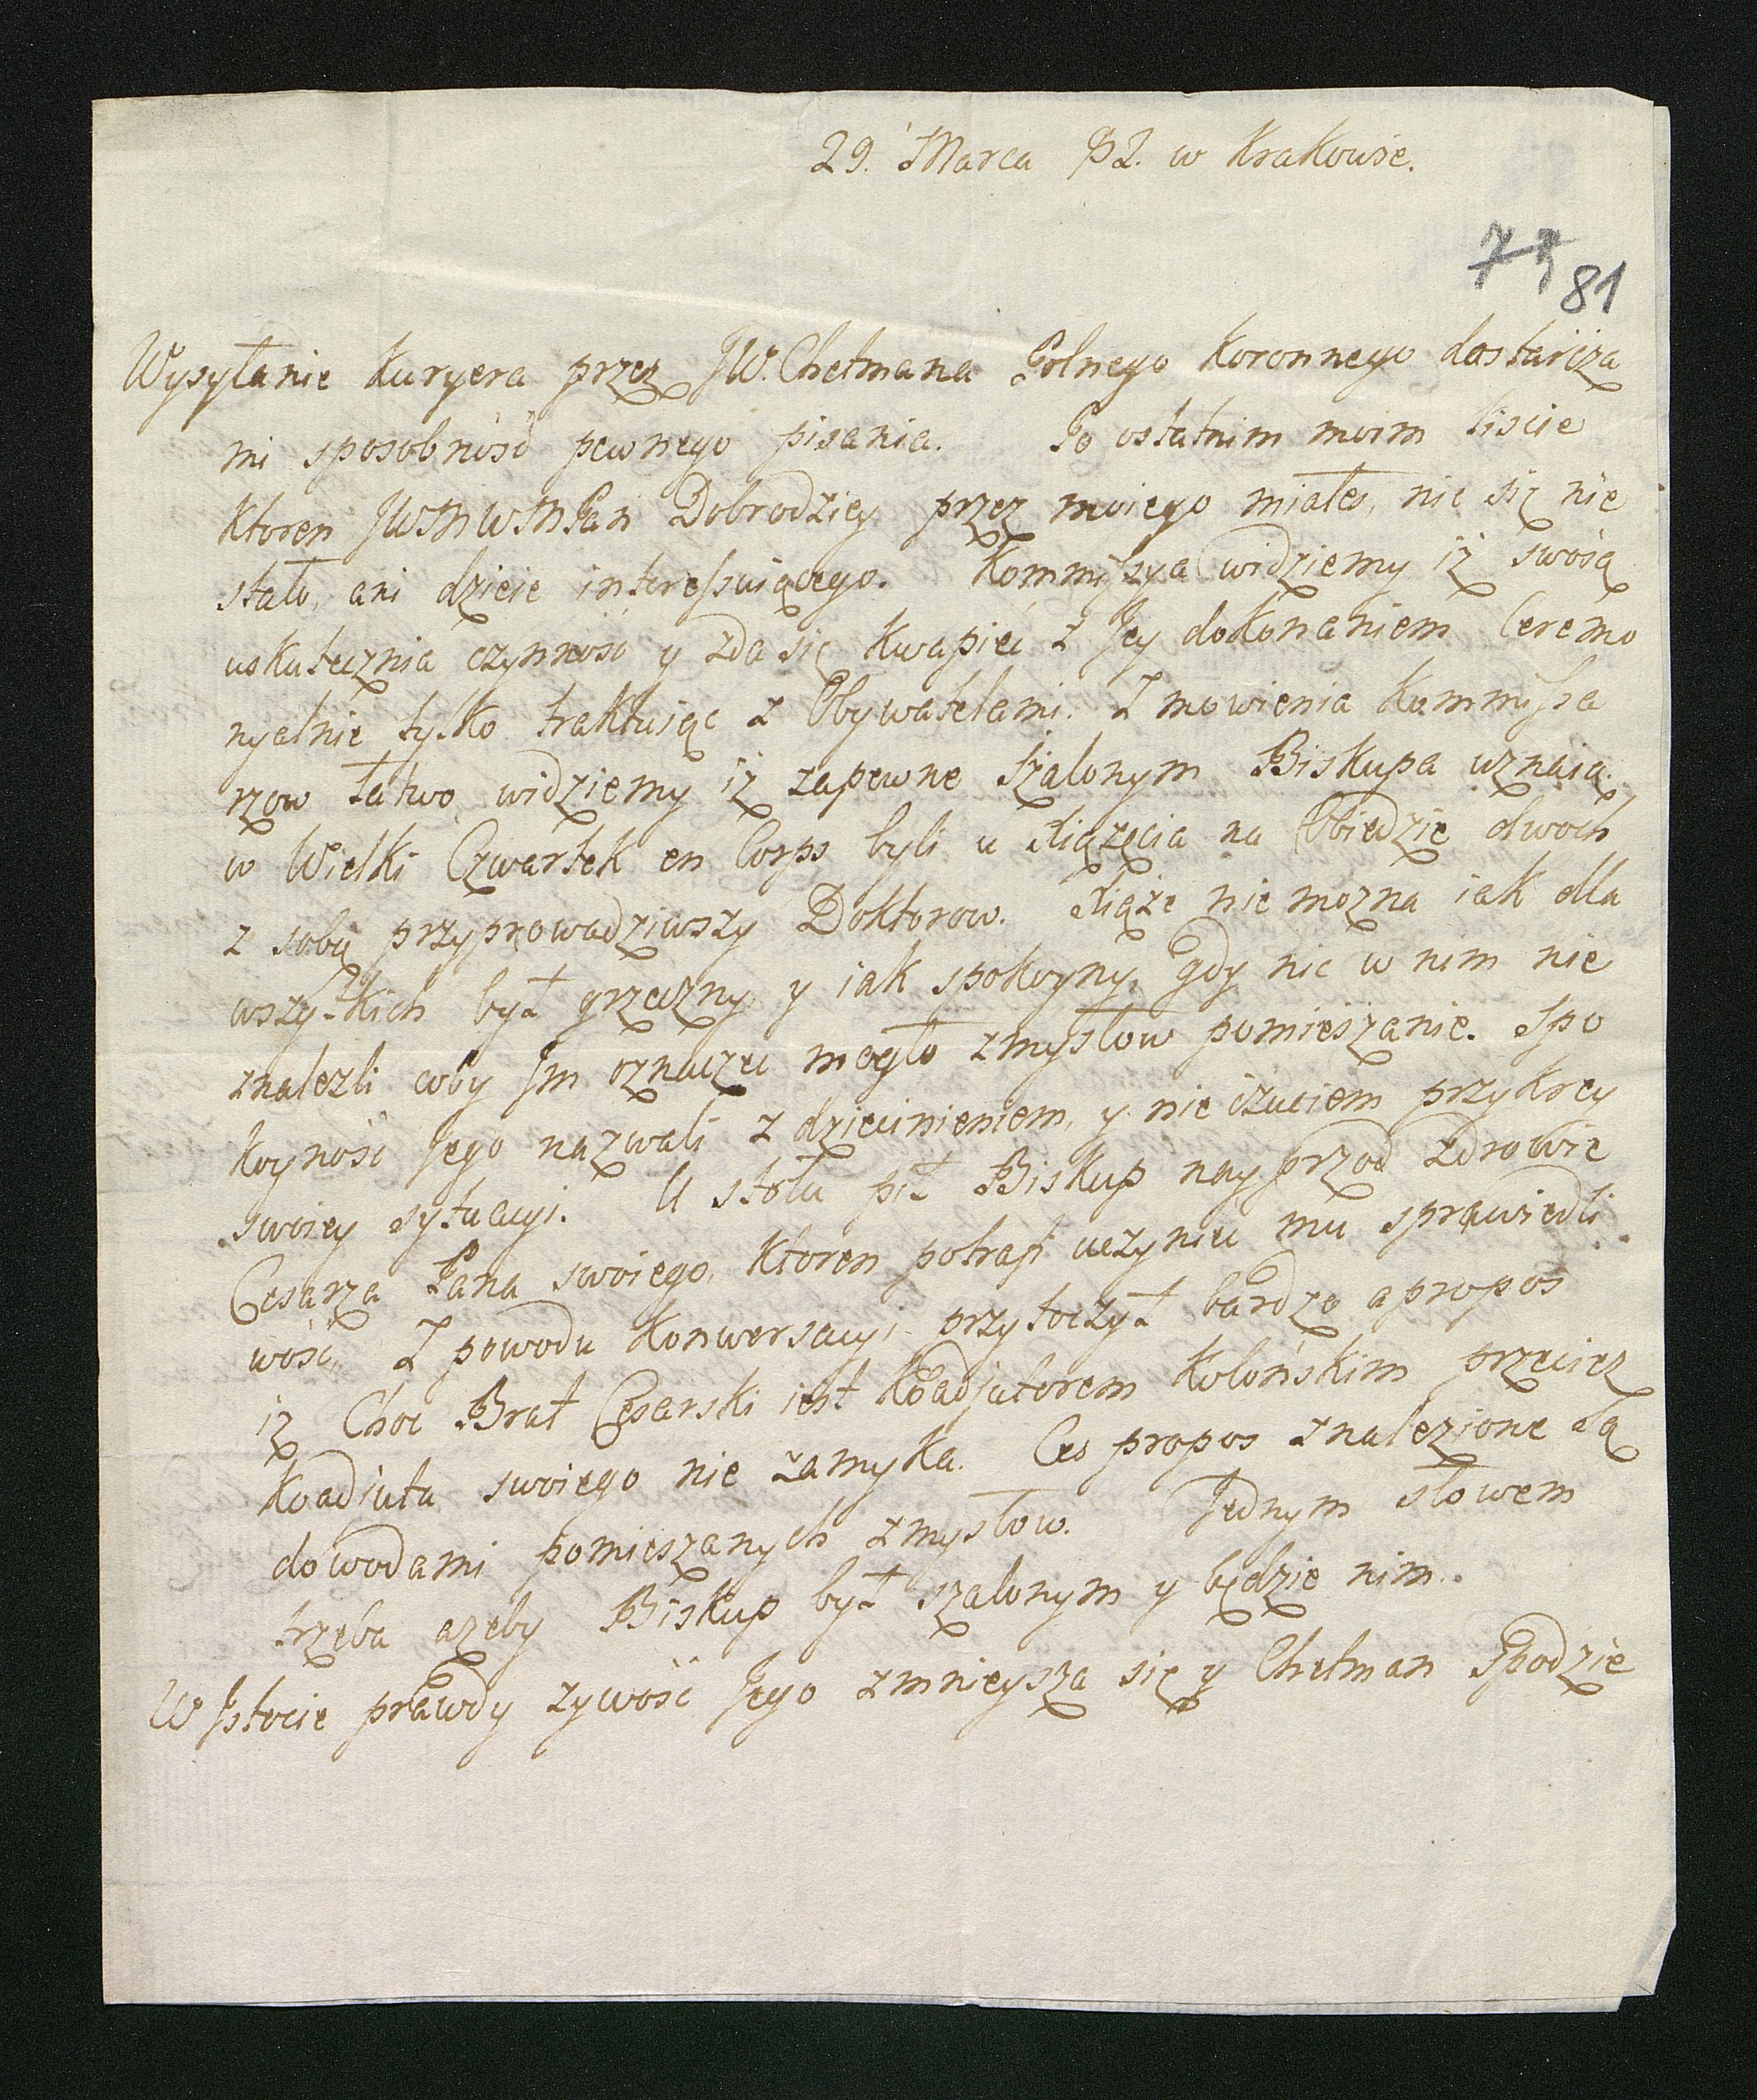 29. Marca 82. w Krakowie.
81
Wysyłanie Kuryera przez JW. Chetmana Polnego Koronnego dostarcza
mi sposobność pewnego pisania. Po ostatnim moim liscie
Ktoren JWMWMPan Dobrodziey przez moiego miałes, nic się nie
stało, ani dzieie interessuiącego. Kommissya widziemy iż swoią
uskutecznia czynność y zda się kwapieć z Jey dokonaniem Ceremo
nyalnie tylko traktuiąc z Obywatelami. Z mowienia Kommissa
rzow łatwo widziemy iż zapewne szalonym Biskupa uznaią.
w Wielki Czwartek en Corps byli u Xiążęcia na Obiedzie dwoch
z sobą przyprowadziwszy Doktorow. Xiąże nie mozna iak dla
wszystkich był grzeczny y iak spokoyny, gdy nic w nim nie
znalezli coby Jm oznaczeć mogło zmysłow pomieszanie. Spo
koyność Jego nazwali zdziecinieniem, y nie czuciem przykrey
swoiey sytuacyi. U stołu pił Biskup nayprzod zdrowie
Cesarza Pana swoiego, Ktoren potrafi uczynić mu sprawiedli
wość, Z powodu Konwersacyi przytoczył bardzo apropos
iż Choc Brat Cesarski iest Koadjutorem Kolońskim przeciez
Koadiuta swoiego nie zamyka. Ces propos znalezione są
dowodami pomieszanych zmysłow. Jednym słowem
trzeba azeby Biskup był szalonym y będzie nim.
W Jstocie prawdy zywość Jego zmnieysza się y Chetman Spodzie